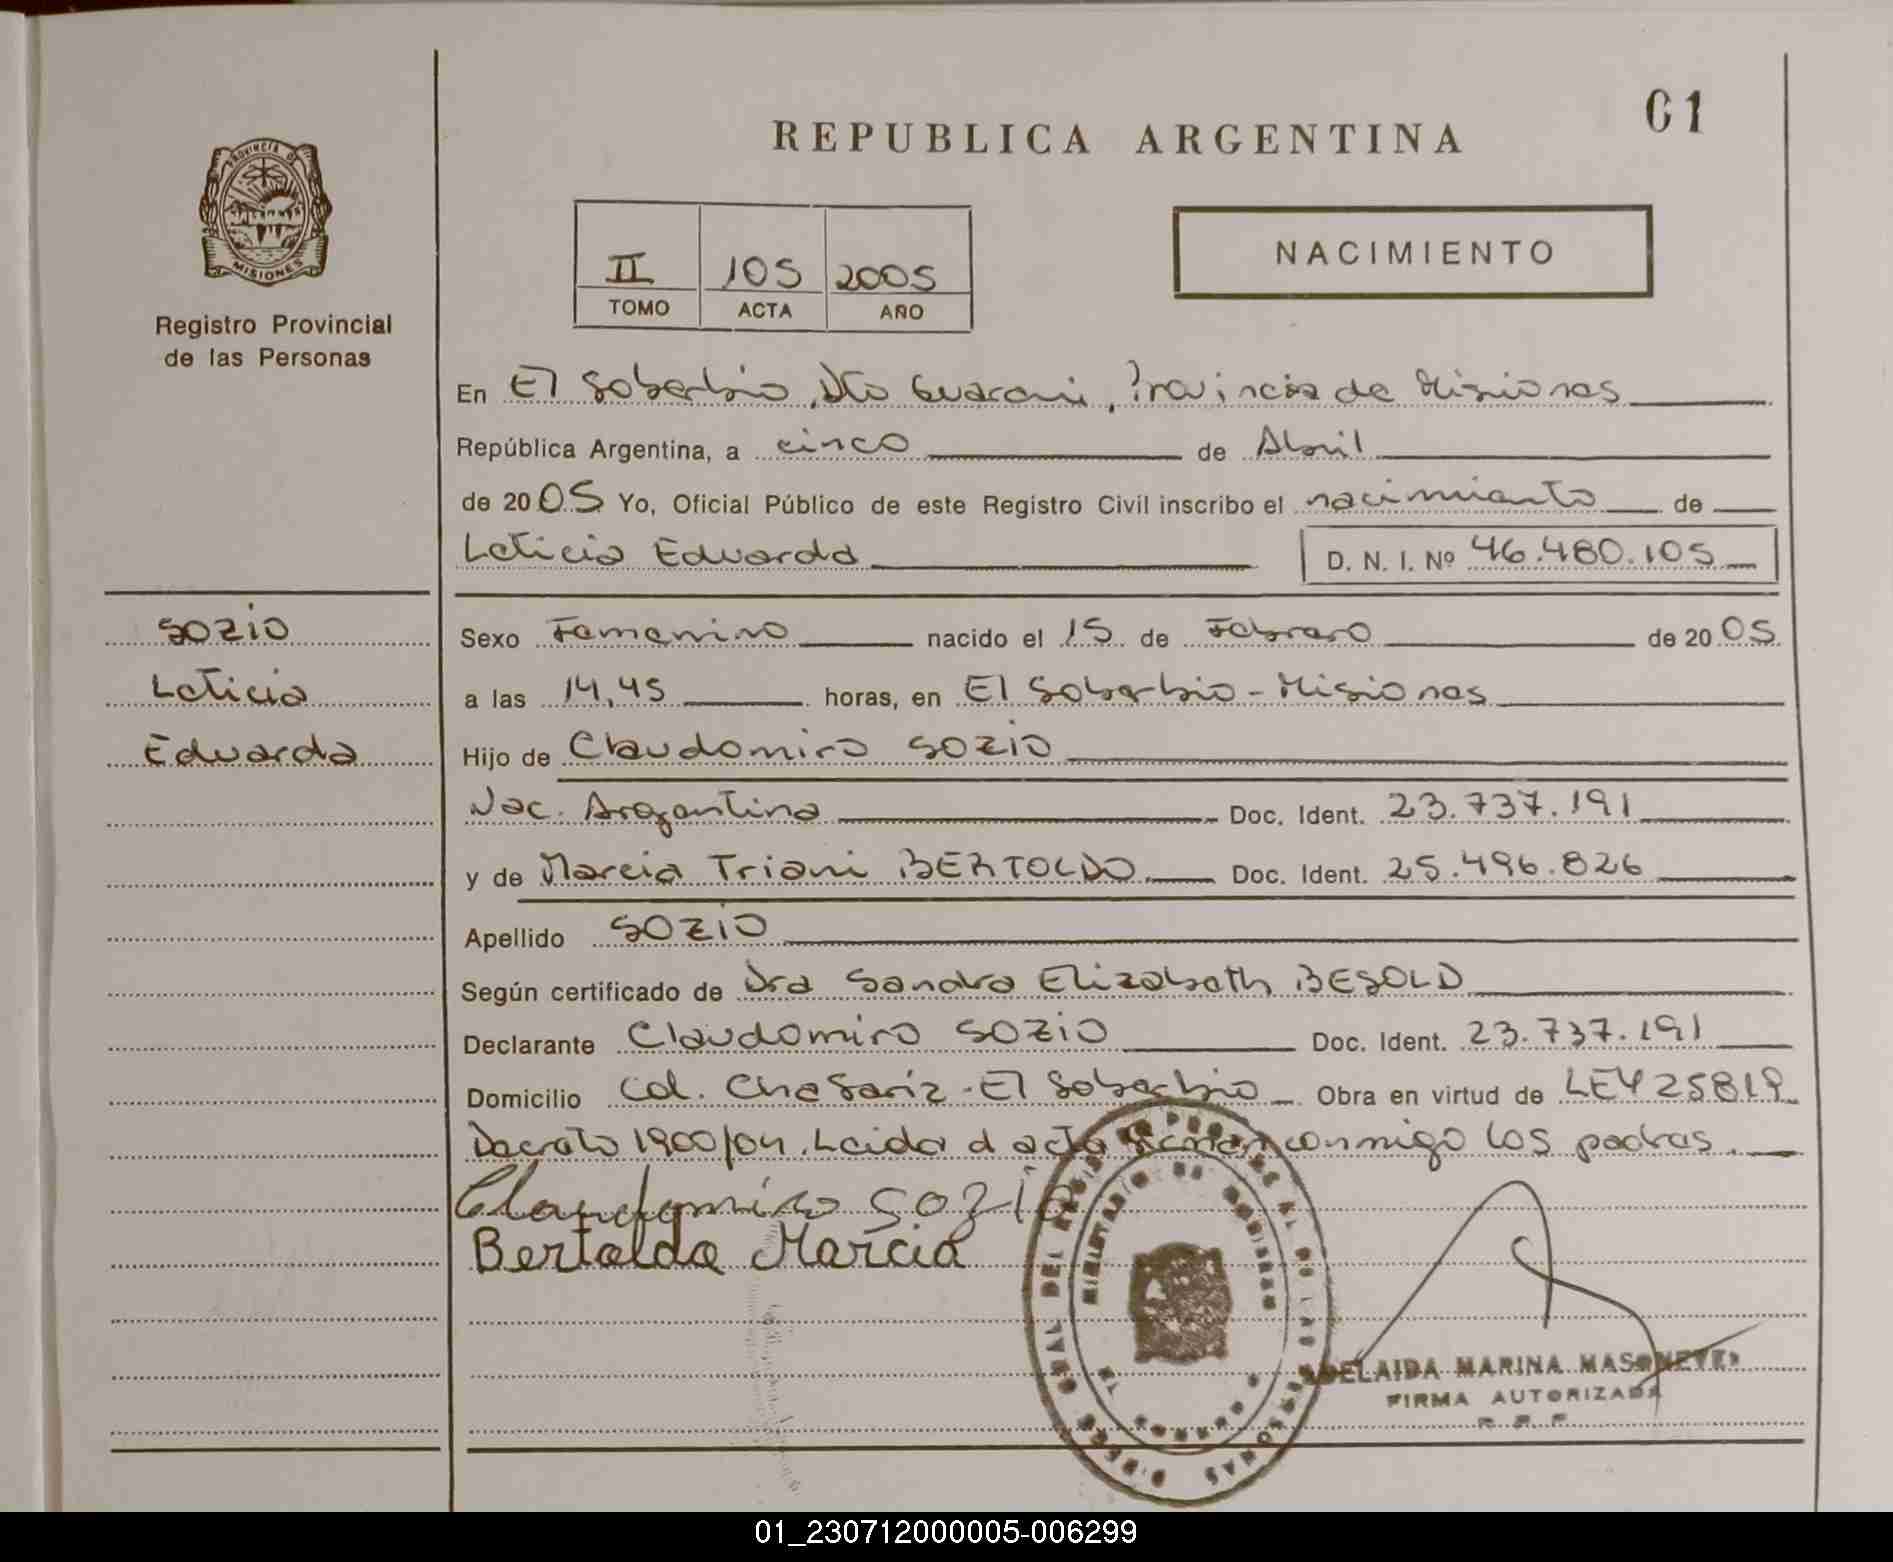 REPUBLICA ARGENTINA
01
PROVINCIA DE
MISIONES
Registro Provincial
de las Personas
II 105 2005
TOMO ACTA AÑO
NACIMIENTO
En El Soberbio, Dto Guarani, Provincia de Misiones
República Argentina, a cinco de Abril
de 2005 Yo, Oficial Público de este Registro Civil inscribo el nacimiento de
Leticia Eduarda D. N. I. Nº 46.480.105
SOZIO
Leticia
Eduarda
Sexo Femenino nacido el 15 de Febrero de 2005
a las 14,45 horas, en El Soberbio - Misiones
Hijo de Claudomiro SOZIO
Nac. Argentina Doc. Ident. 23.737.191
y de Marcia Triani BERTOLDO Doc. Ident. 25.496.826
Apellido SOZIO
Según certificado de Dra Sandra Elizabeth BESOLD
Declarante Claudomiro SOZIO Doc. Ident. 23.737.191
Domicilio Col. Chafariz - El Soberbio Obra en virtud de LEY 25819
Decreto 1900/04. Leida el acta firman conmigo los padres.
Claudomiro Sozio
Bertoldo Marcia
MINISTERIO DE GOBIERNO
ADELAIDA MARINA
FIRMA AUTORIZADA
01_230712000005-006299